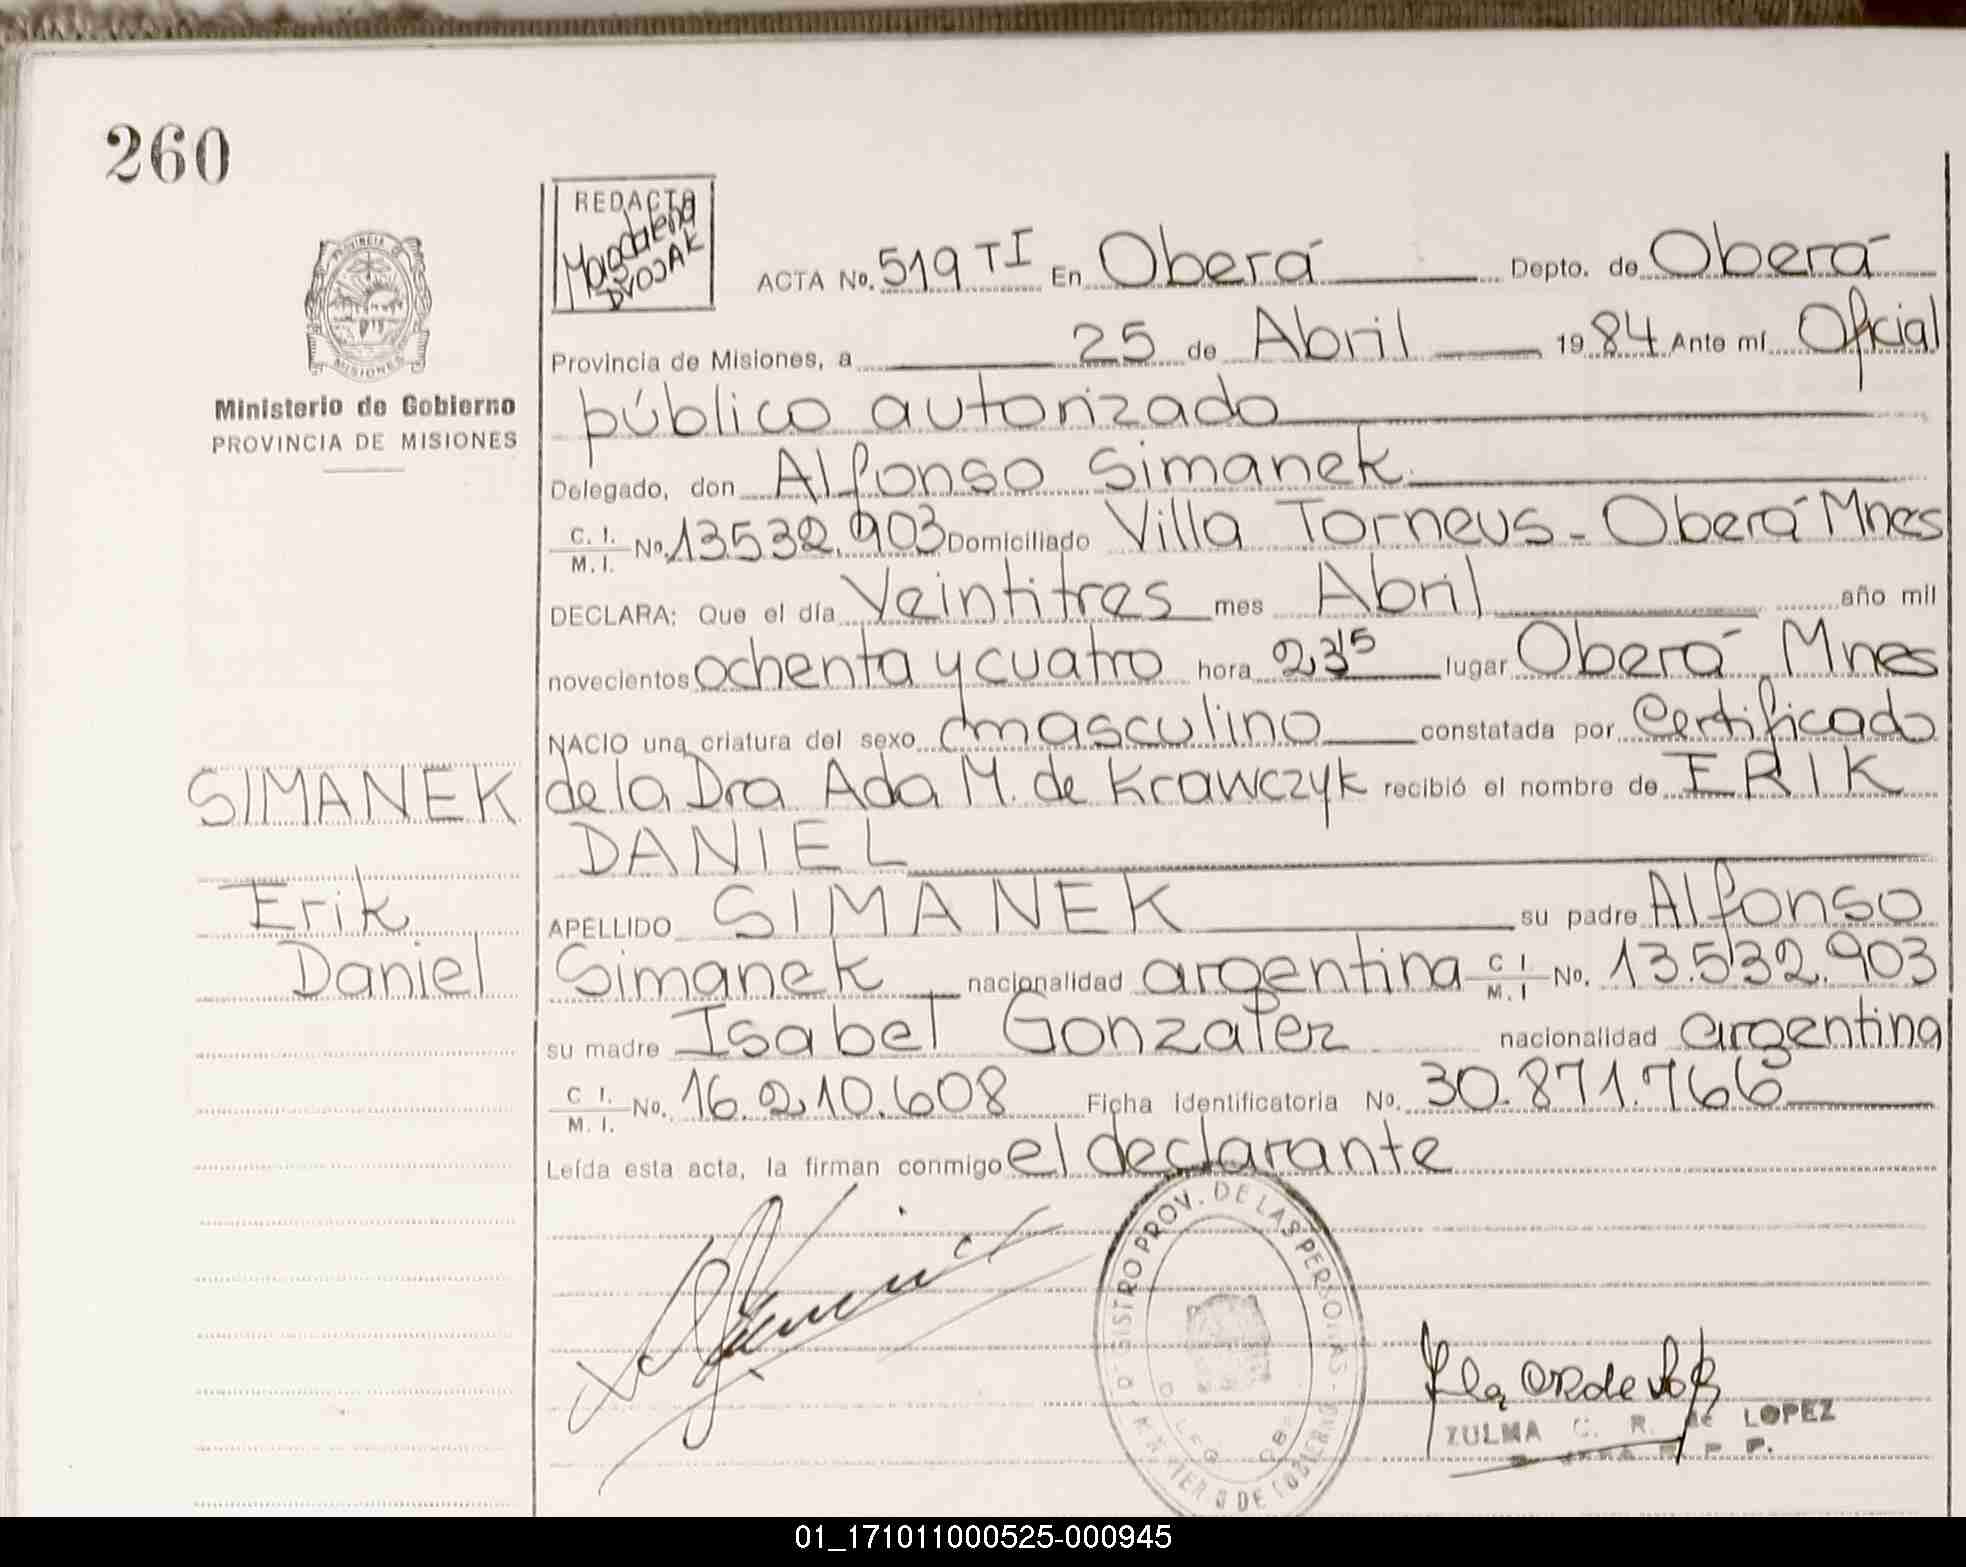 260
REDACTO
Magdalena
DVOJAK
ACTA No. 519 TI En Oberá Depto. de Oberá
PROVINCIA
MISIONES
Provincia de Misiones, a 25 de Abril 1984 Ante mí Oficial
Ministerio de Gobierno
PROVINCIA DE MISIONES
público autorizado
Delegado, don Alfonso Simanek
C. I. / M. I. No. 13.532.903 Domiciliado Villa Torneus - Oberá Mnes
DECLARA: Que el día Veintitres mes Abril año mil
novecientos ochenta y cuatro hora 23 15 lugar Oberá Mnes
NACIO una criatura del sexo masculino constatada por Certificado
SIMANEK
de la Dra Ada M. de Krawczyk recibió el nombre de ERIK
DANIEL
Erik
Daniel
APELLIDO SIMANEK su padre Alfonso
Simanek nacionalidad argentina C I / M. I No. 13.532.903
su madre Isabel Gonzalez nacionalidad argentina
C I. / M. I. No. 16.210.608 Ficha identificatoria No. 30.871.766
Leída esta acta, la firman conmigo el declarante
PROV. DE LAS PERSONAS
ZULMA C. R. de LOPEZ
01_171011000525-000945